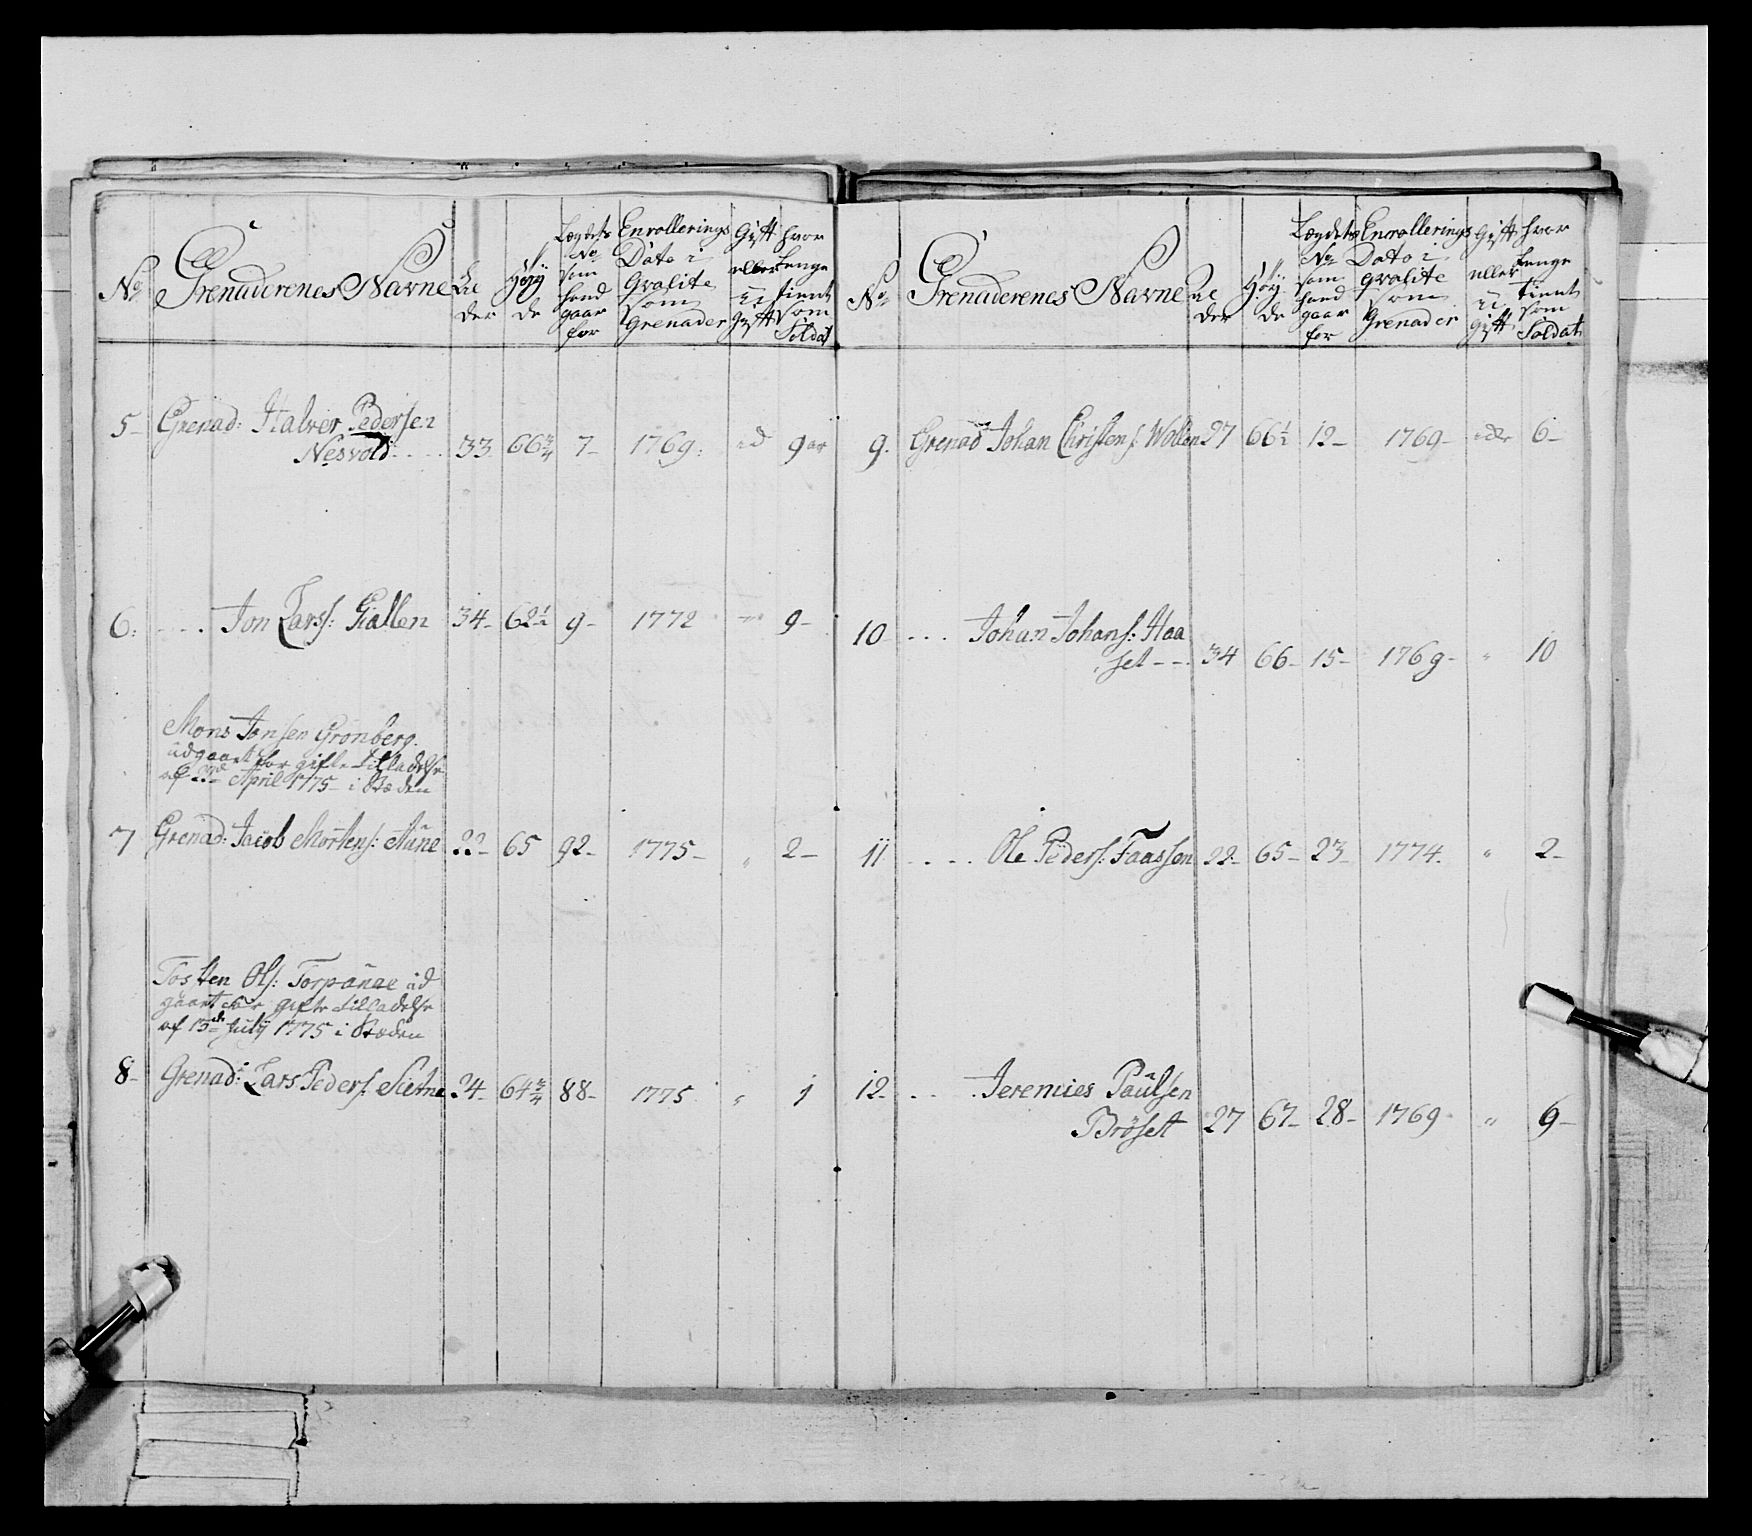 No
Grenaderenes Navne
Al
der
Høy
de
Legdets
No
som
hand
gaar
for
Enrollerings
Dato i
qvalite
som
Grenader
Gift
eller
u
gift
hvor
Lenge
tient
som
Soldat
5 Grenad: Halver Pedersen
Nesvold 33 66¾ 7 1769 9 aar
6 Jon Lars: Giallen 34 62½ 9 1772 9
Mons Jonsen Grønberg
udgaaet for gifte tilladelse
af April 1775 i Stæden
7 Grenad: Jacob Mortens: Aune 22 65 92 1775 " 2
Tosten Ols: Torpaune ud
gaaet for gifte tilladelse
af 15de July 1775 i Stæden
8 Grenad: Lars Peders: Sletne 24 64¾ 88 1775 " 1
No
Grenaderenes Navne
Al
der
Høy
de
Legdets
No
som
hand
gaar
for
Enrollerings
Dato i
qvalite
som
Grenader
Gift
eller
u
gift
hvor
Lenge
tient
som
Soldat
9. Grenad Johan Christens: Wollen 27 66½ 12 1769 6
10 Johan Johans: Haa
set 34 66 15 1769 " 10
11 Ole Peders: Faassen 22 65 23 1774 " 2
12 Jeremies Paulsen
Brøset 27 67 28 1769 " 6